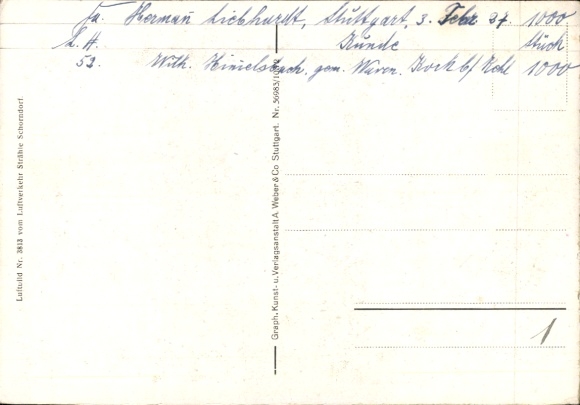 Fa. Hermañ Liebhardt, Stuttgart, 3. Febr 37. 1000
L. H. Kunde Stück
52. Wilh. Himelsbach, gem. Waren. Kork b/ Kehl 1000
Luftbild Nr. 3813 vom Luftverkehr Strähle Schorndorf
Graph. Kunst- u. Verlagsanstalt A. Weber & Co Stuttgart. Nr. 36985/1000
1